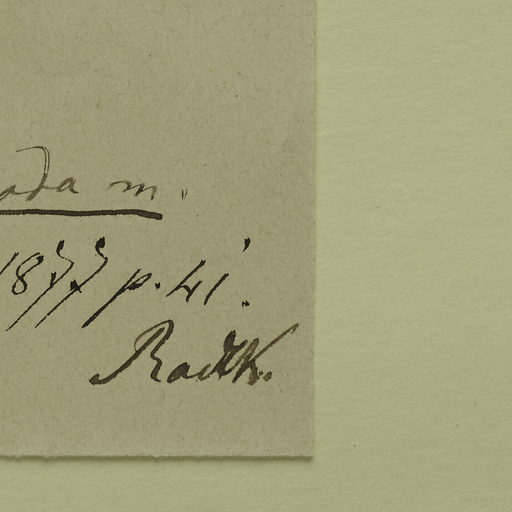 ada m.
1877 p. 41.
Radlk.